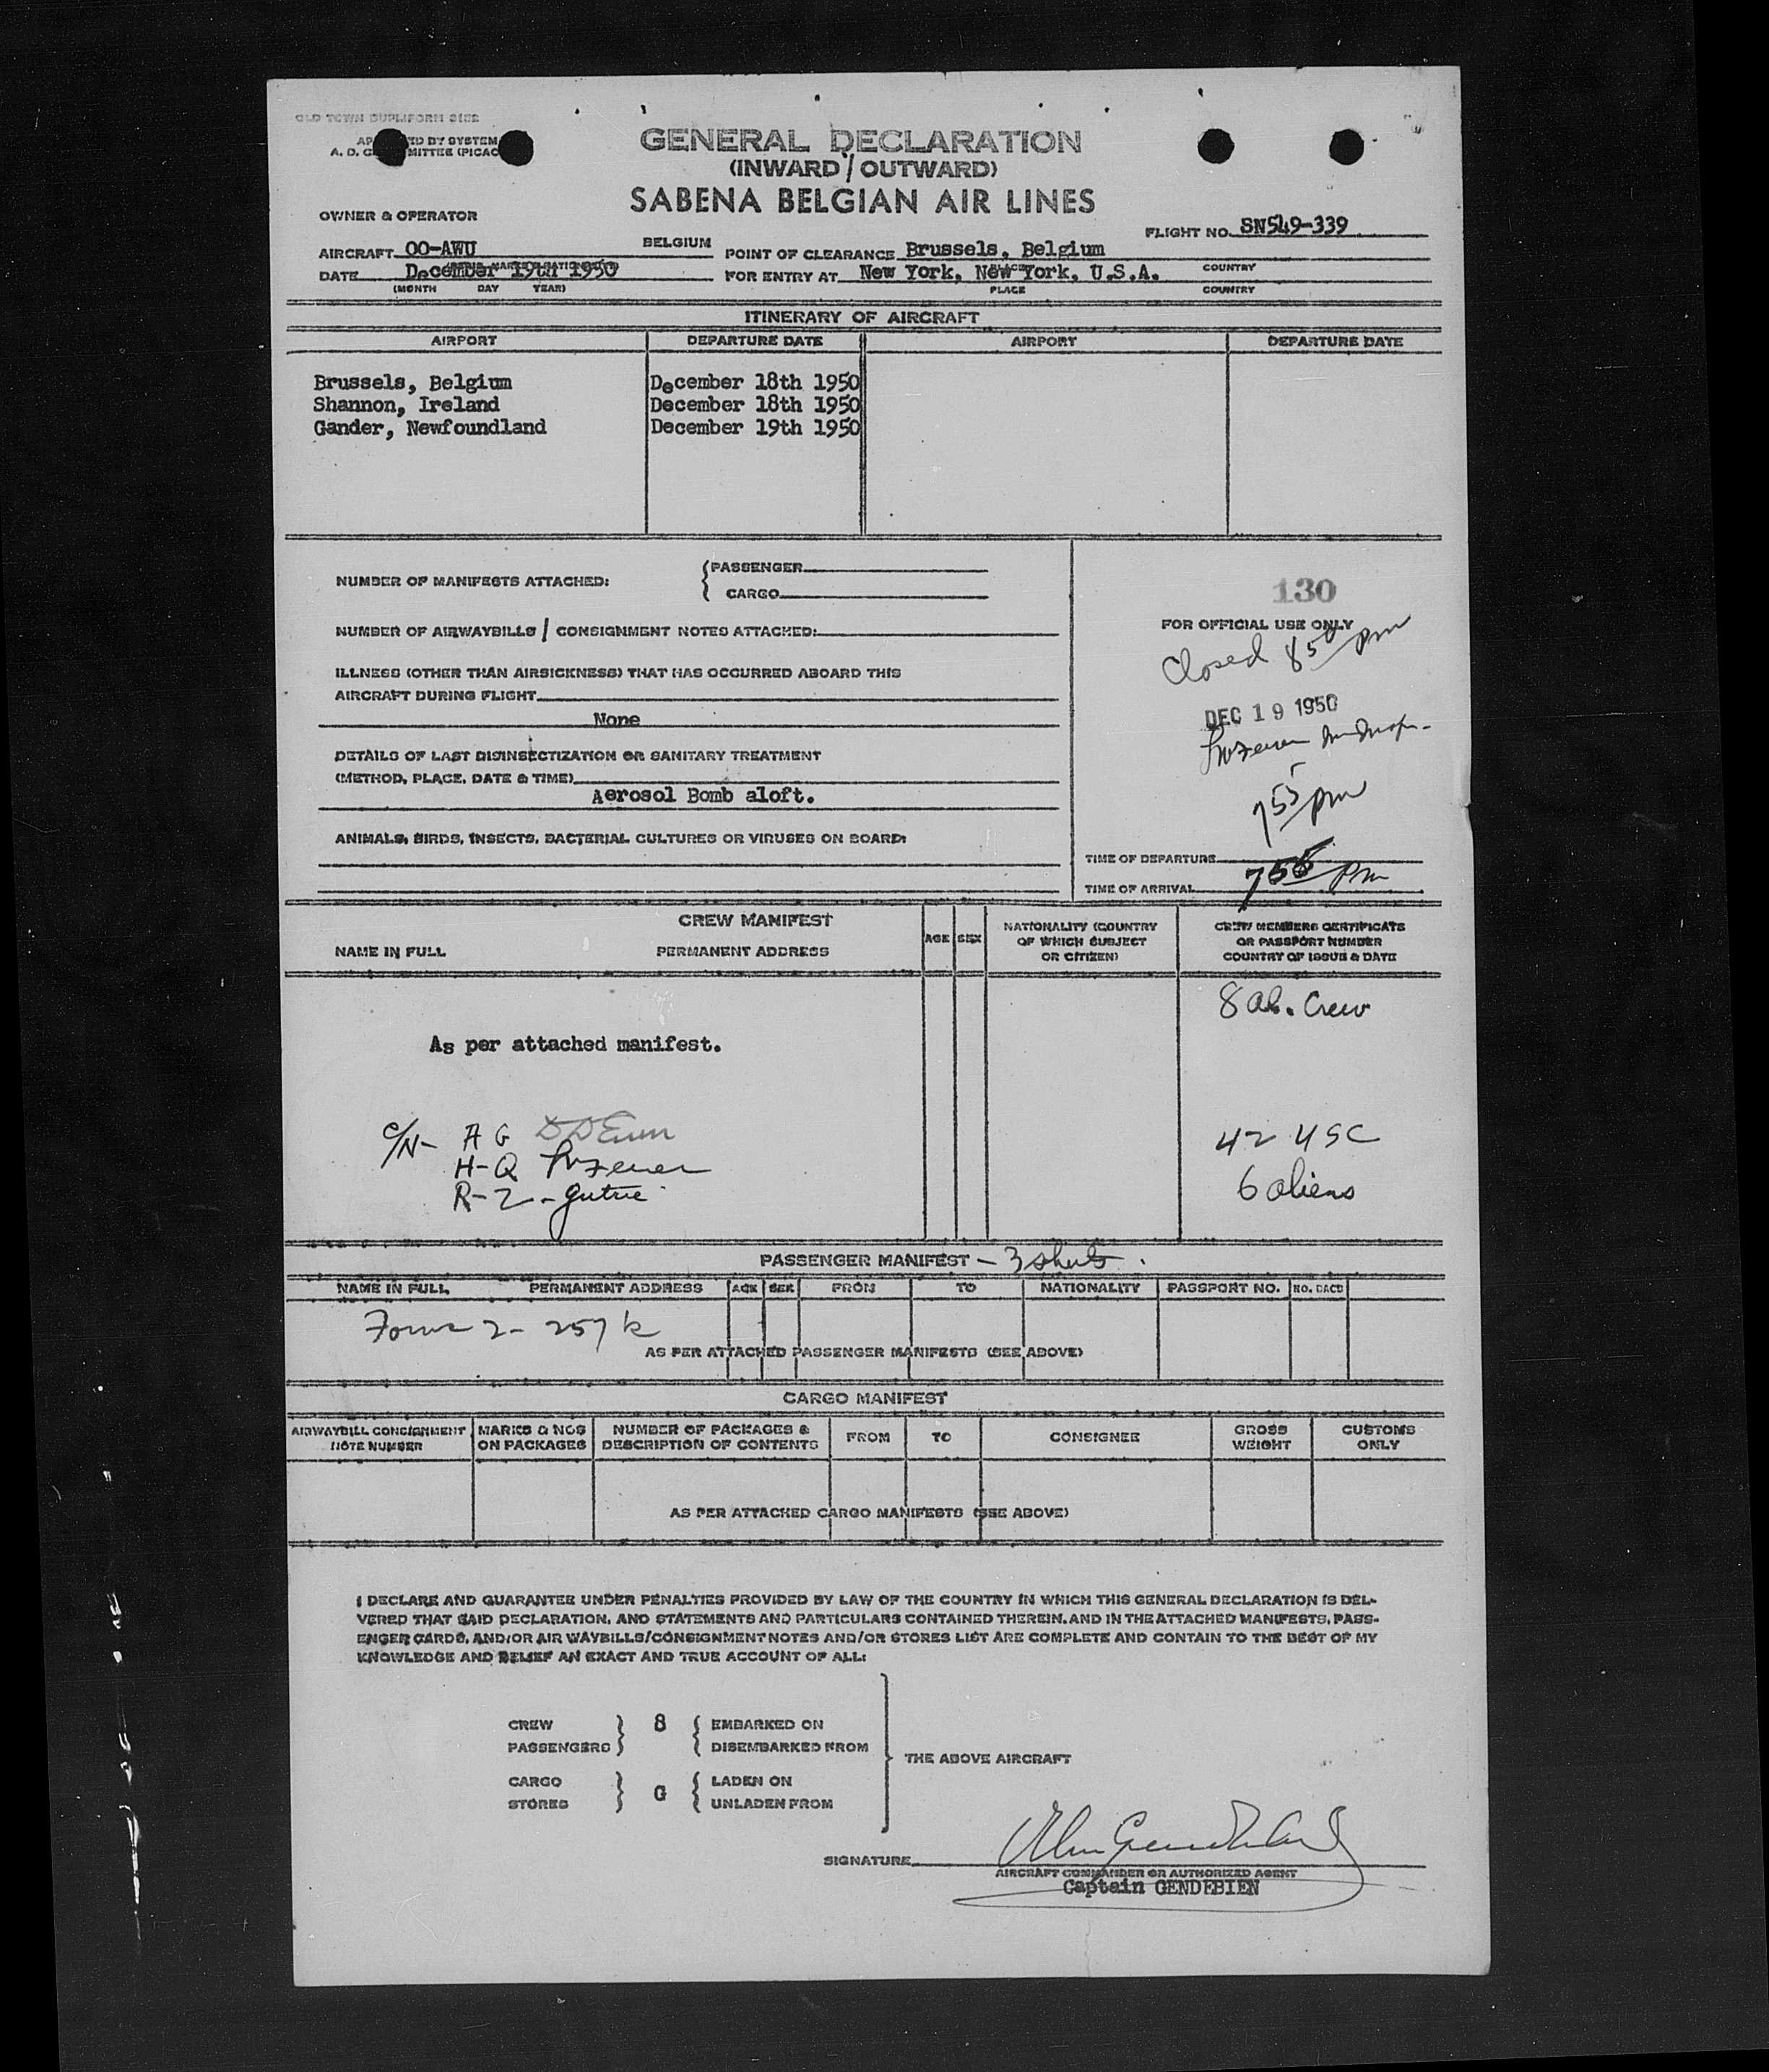 OLD TOWN DUPLIFORM
BY SYSTEM
(PICAO
GENERAL DECLARATION
(INWARD / OUTWARD)
SABENA BELGIAN AIR LINES
OWNER & OPERATOR
FLIGHT NO. SN549-339
AIRCRAFT OO-AWU BELGIUM POINT OF CLEARANCE Brussels, Belgium
DATE December 19th 1950 FOR ENTRY AT New York, New York, U.S.A. COUNTRY
(MONTH DAY YEAR) PLACE COUNTRY
ITINERARY OF AIRCRAFT
AIRPORT DEPARTURE DATE AIRPORT DEPARTURE DATE
Brussels, Belgium December 18th 1950
Shannon, Ireland December 18th 1950
Gander, Newfoundland December 19th 1950
NUMBER OF MANIFESTS ATTACHED: { PASSENGER
CARGO
130
FOR OFFICIAL USE ONLY
NUMBER OF AIRWAYBILLS / CONSIGNMENT NOTES ATTACHED:
Closed 850 pm
ILLNESS (OTHER THAN AIRSICKNESS) THAT HAS OCCURRED ABOARD THIS
AIRCRAFT DURING FLIGHT
None
DEC 19 1950
DETAILS OF LAST DISINSECTIZATION OR SANITARY TREATMENT
(METHOD, PLACE, DATE & TIME)
Aerosol Bomb aloft.
755 pm
ANIMALS, BIRDS, INSECTS, BACTERIAL CULTURES OR VIRUSES ON BOARD:
TIME OF DEPARTURE
TIME OF ARRIVAL 755 pm
CREW MANIFEST
NAME IN FULL PERMANENT ADDRESS AGE SEX NATIONALITY (COUNTRY OF WHICH SUBJECT OR CITIZEN) CREW MEMBERS CERTIFICATE OR PASSPORT NUMBER COUNTRY OF ISSUE & DATE
8 al. Crew
As per attached manifest.
C/N- A G
H-Q
R-2 -
42 USC
6 aliens
PASSENGER MANIFEST - 3 shts.
NAME IN FULL PERMANENT ADDRESS AGE SEX FROM TO NATIONALITY PASSPORT NO.
Forms 2- 257 k
AS PER ATTACHED PASSENGER MANIFESTS (SEE ABOVE)
CARGO MANIFEST
AIRWAYBILL CONSIGNMENT NOTE NUMBER MARKS & NOS ON PACKAGES NUMBER OF PACKAGES & DESCRIPTION OF CONTENTS FROM TO CONSIGNEE GROSS WEIGHT CUSTOMS ONLY
AS PER ATTACHED CARGO MANIFESTS (SEE ABOVE)
I DECLARE AND GUARANTEE UNDER PENALTIES PROVIDED BY LAW OF THE COUNTRY IN WHICH THIS GENERAL DECLARATION IS DEL-
VERED THAT SAID DECLARATION, AND STATEMENTS AND PARTICULARS CONTAINED THEREIN, AND IN THE ATTACHED MANIFESTS, PASS-
ENGER CARDS, AND/OR AIR WAYBILLS/CONSIGNMENT NOTES AND/OR STORES LIST ARE COMPLETE AND CONTAIN TO THE BEST OF MY
KNOWLEDGE AND BELIEF AN EXACT AND TRUE ACCOUNT OF ALL:
CREW } 8 { EMBARKED ON
PASSENGERS DISEMBARKED FROM
THE ABOVE AIRCRAFT
CARGO } G { LADEN ON
STORES UNLADEN FROM
SIGNATURE
AIRCRAFT COMMANDER OR AUTHORIZED AGENT
Captain GENDEBIEN